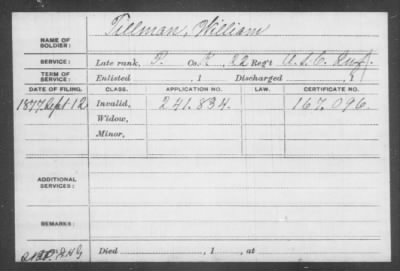 NAME OF SOLDIER: Tillman, William
SERVICE: Late rank, P. Co. K, 22 Reg't U.S.C. Inf.
TERM OF SERVICE: Enlisted , 1 Discharged , 1
DATE OF FILING. CLASS. APPLICATION NO. LAW. CERTIFICATE NO.
1877 Sept 12 Invalid, 241.834. 167.096.
Widow,
Minor,
ADDITIONAL SERVICES:
REMARKS:
Died , 1 , at